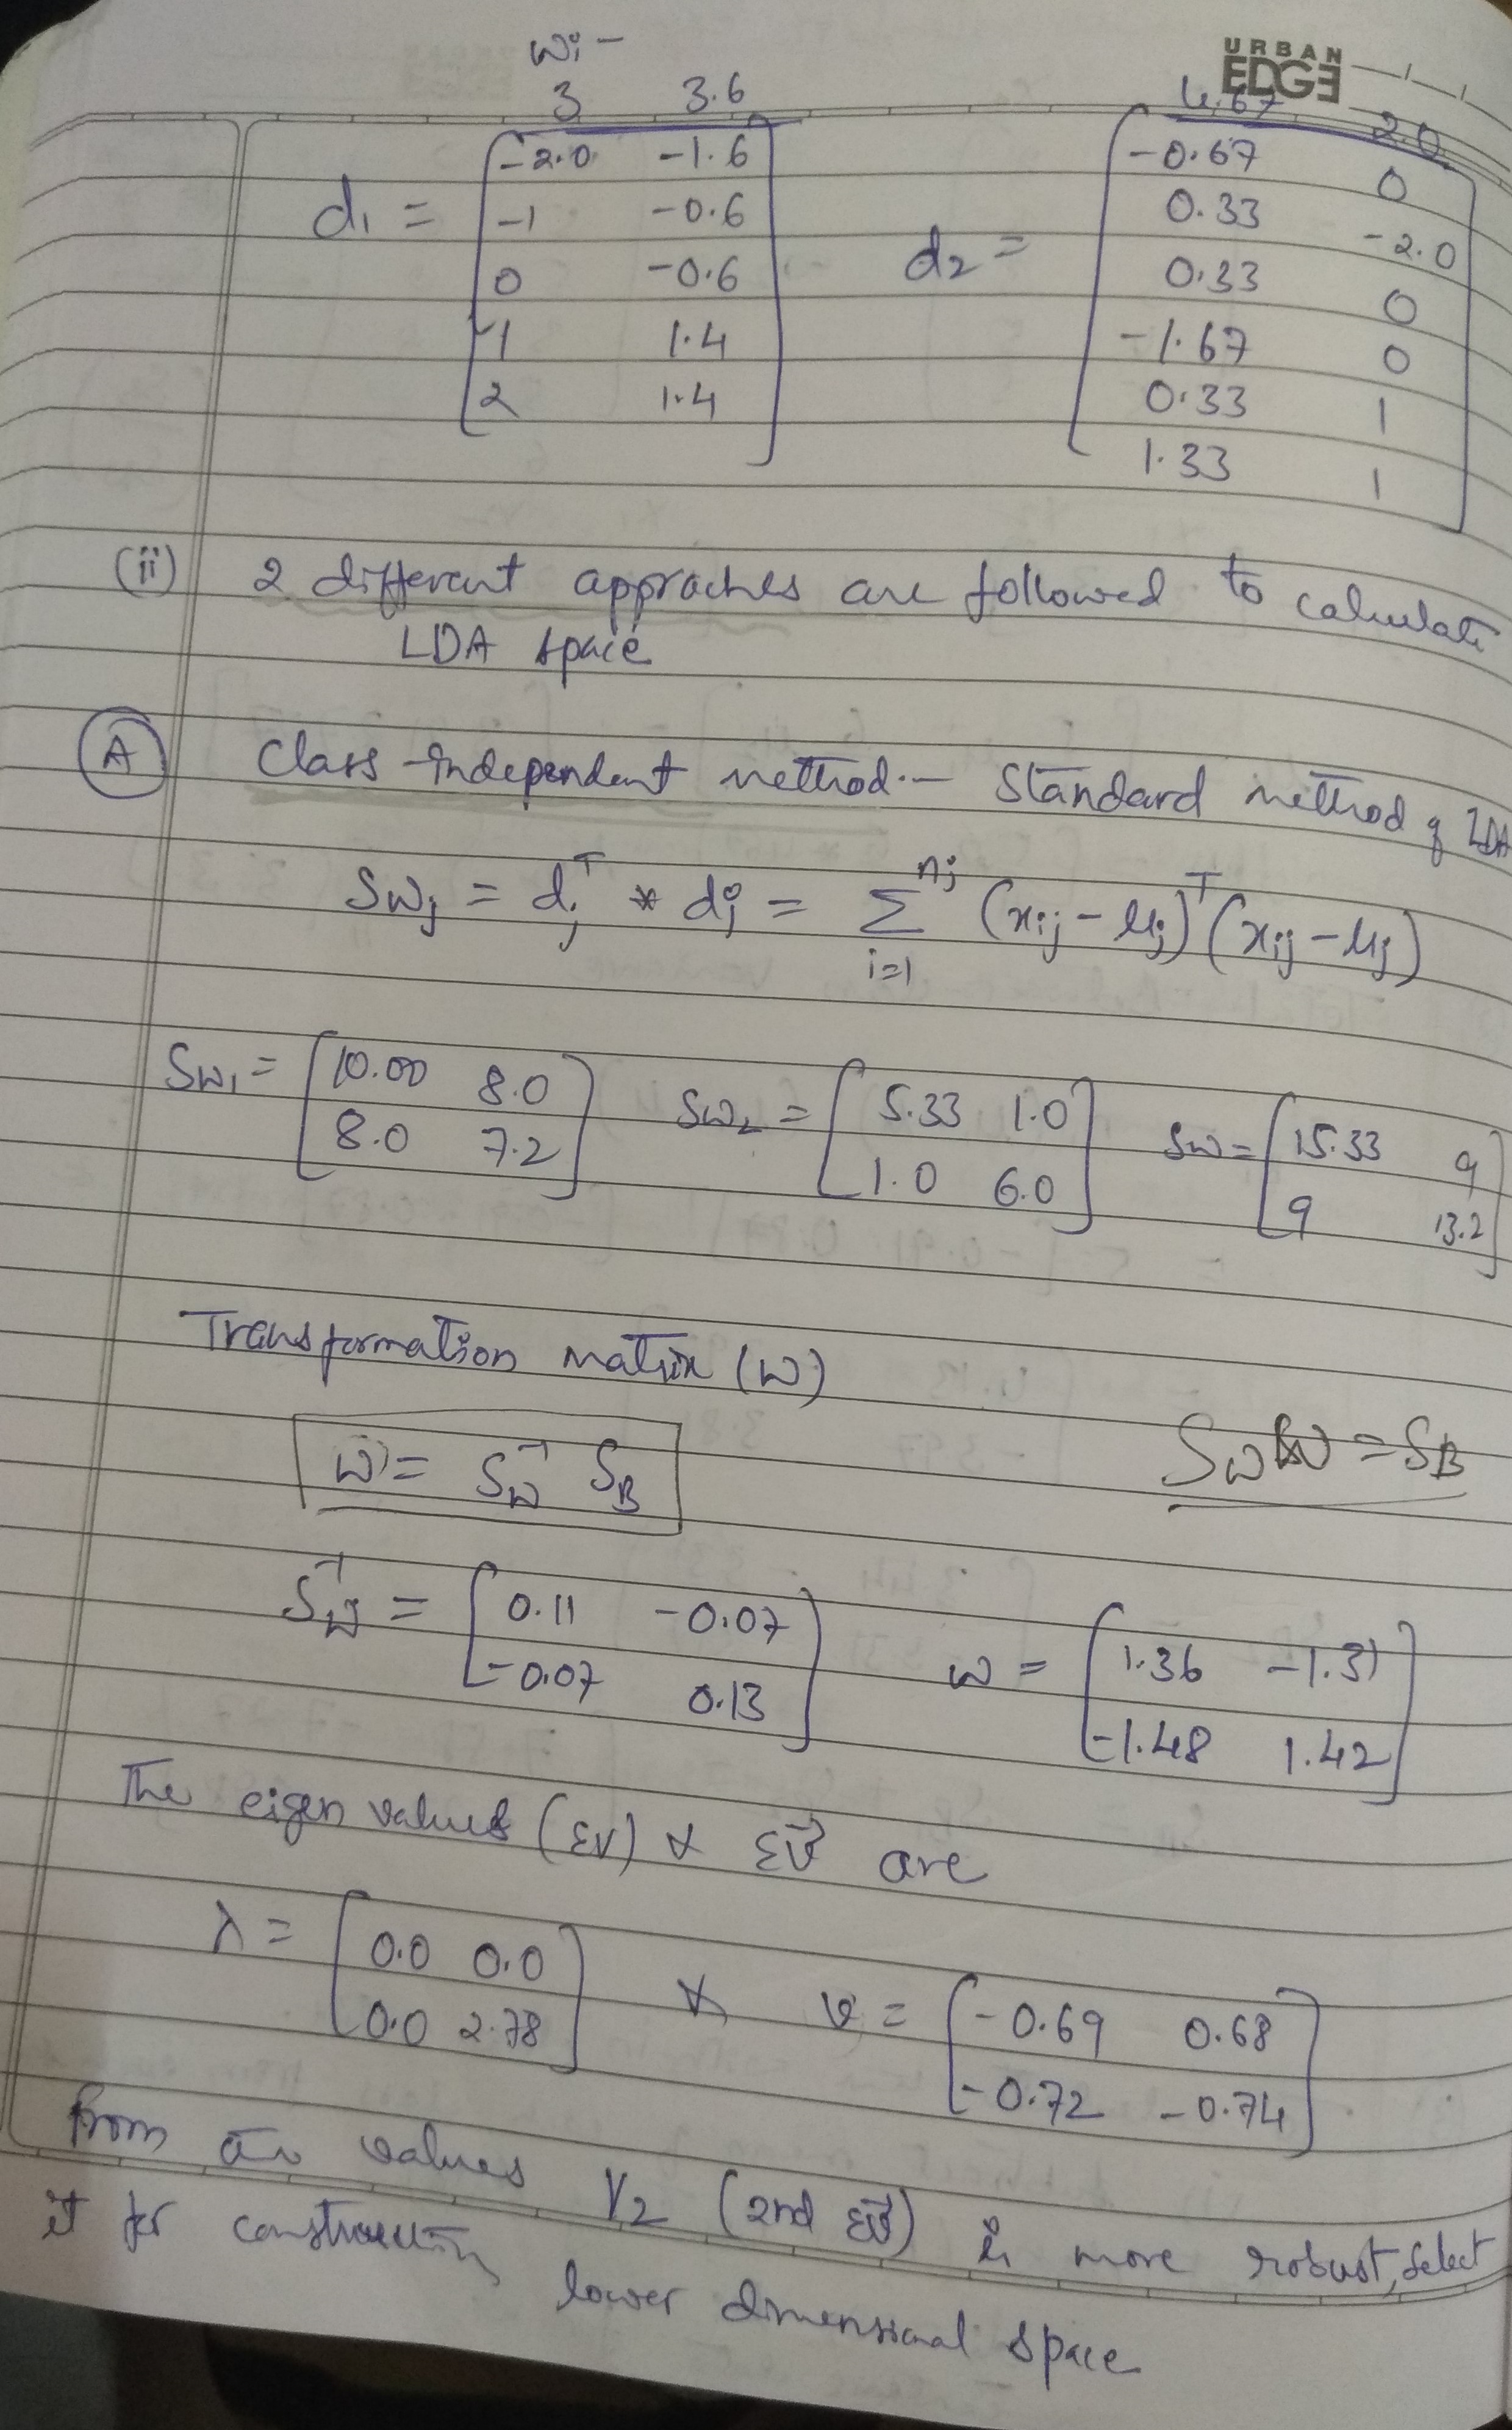 URBAN
EDGE
ωi –
3 3.6
4.67 2.0
d₁ = [ -2.0 -1.6
-1 -0.6
0 -0.6
1 1.4
2 1.4 ]
d₂ = [ -0.67 0
0.33 -2.0
0.33 0
-1.67 0
0.33 1
1.33 1 ]
(ii) 2 different approaches are followed to calculate
LDA space
(A) Class-independent method :– Standard method of LDA
Swⱼ = dⱼᵀ * dⱼ = Σ_{i=1}^{nⱼ} (xᵢⱼ – μⱼ)ᵀ (xᵢⱼ – μⱼ)
Sw₁ = [ 10.00 8.0
8.0 7.2 ] Sw₂ = [ 5.33 1.0
1.0 6.0 ] Sw = [ 15.33 9
9 13.2 ]
Transformation matrix (W)
W = S_W⁻¹ S_B
S_W W = S_B
S_W⁻¹ = [ 0.11 -0.07
-0.07 0.13 ] W = [ 1.36 -1.31
-1.48 1.42 ]
The eigen values (EV) & EV⃗ are
λ = [ 0.0 0.0
0.0 2.78 ] & v = [ -0.69 0.68
-0.72 -0.74 ]
from values V₂ (2nd EV⃗) is more robust, select
it for constructing lower dimensional space